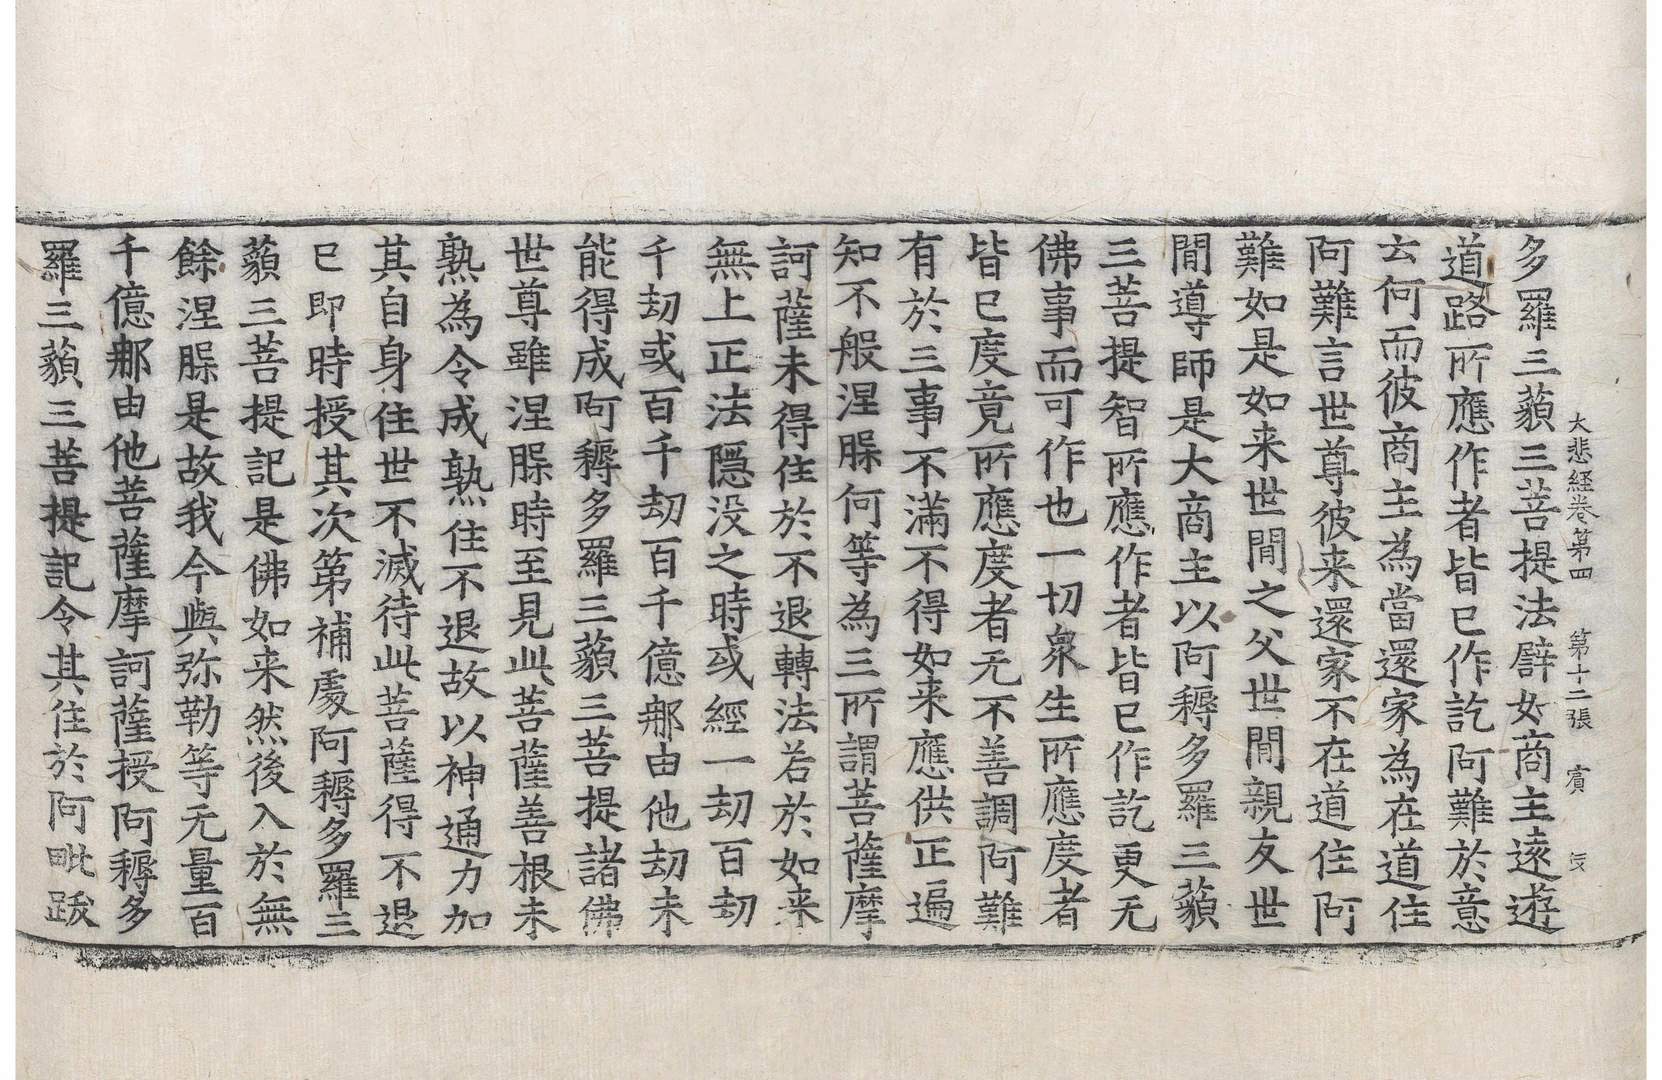 大悲経卷第四 第十二張 賔
多羅三藐三菩提法辟如商主遠遊
道路所應作者皆已作訖阿難於意
云何而彼商主為當還家為在道住
阿難言世尊彼来還家不在道住阿
難如是如来世間之父世間親友世
間導師是大商主以阿耨多羅三藐
三菩提智所應作者皆已作訖更无
佛事而可作也一切衆生所應度者
皆已度竟所應度者无不善調阿難
有於三事不滿不得如来應供正遍
知不般涅槃何等為三所謂菩薩摩
訶薩未得住於不退轉法若於如来
無上正法隱没之時或經一劫百劫
千劫或百千劫百千億𨚗由他劫未
能得成阿耨多羅三藐三菩提諸佛
世尊雖涅槃時至見此菩薩善根未
熟為令成熟住不退故以神通力加
其自身住世不滅待此菩薩得不退
已即時授其次第補處阿耨多羅三
藐三菩提記是佛如来然後入於無
餘涅槃是故我今與弥勒等无量百
千億𨚗由他菩薩摩訶薩授阿耨多
羅三藐三菩提記令其住於阿毗跋